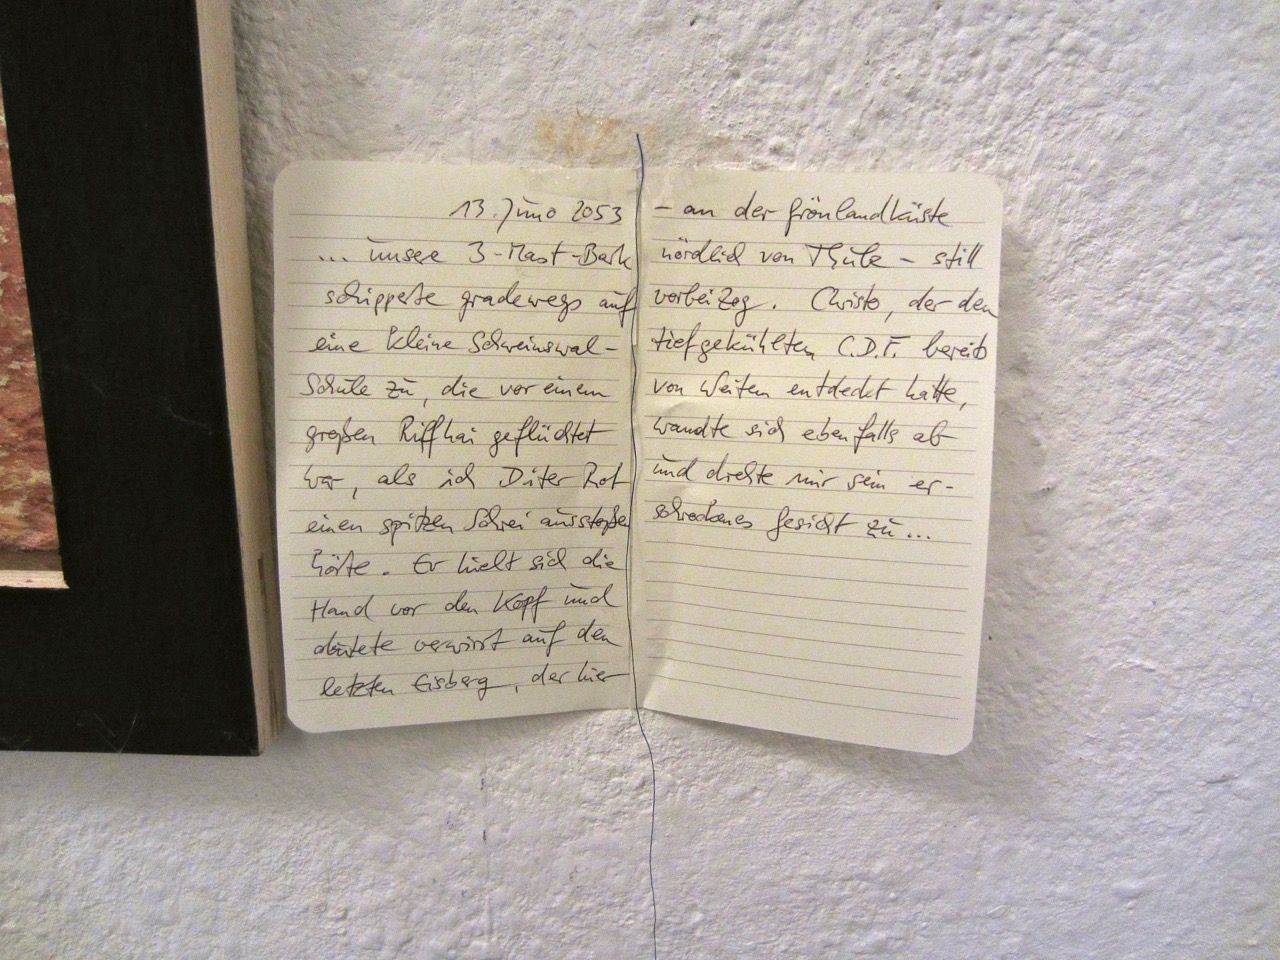 13. Juno 2053
... unsere 3-Mast-Bark
schipperte gradewegs auf
eine kleine Schweinswal-
Schule zu, die vor einem
großen Riffhai geflüchtet
war, als ich Diter Rot
einen spitzen Schrei ausstoßen
hörte. Er hielt sich die
Hand vor den Kopf und
deutete verwirrt auf den
letzten Eisberg, der hier
- an der Grönlandküste
nördlich von Thule - still
vorbeizog. Christo, der den
tiefgekühlten C.D.F. bereits
von Weiten entdeckt hatte,
wandte sich ebenfalls ab
und drehte mir sein er-
schrockenes Gesicht zu...